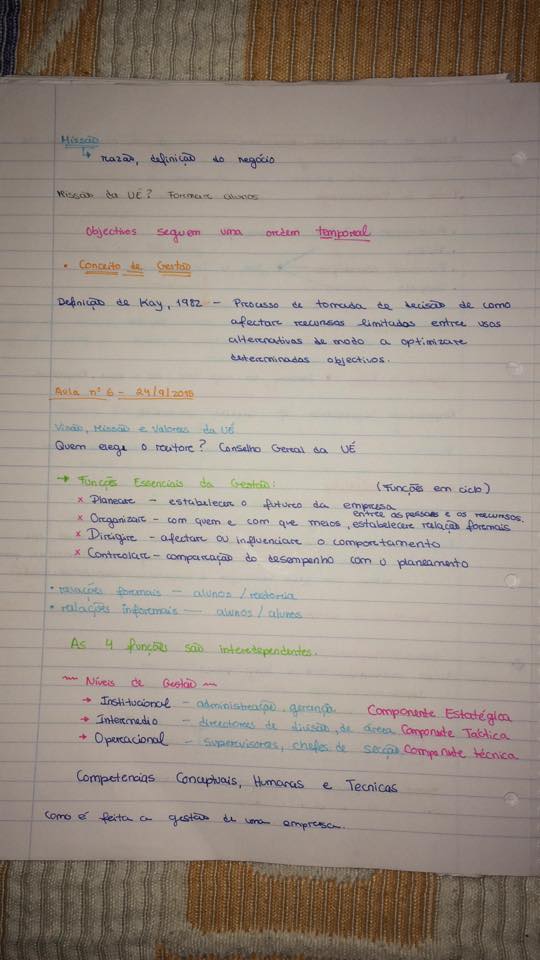 Missão
↳ razão, definição do negócio
Missão da UÉ? Formar alunos
Objectivos seguem uma ordem temporal
• Conceito de Gestão
Definição de Kay, 1982 – Processo de tomada de decisão de como
afectar recursos limitados entre usos
alternativas de modo a optimizar
determinados objectivos.
Aula nº 6 – 24/9/2015
Visão, Missão e Valores da UÉ
Quem elege o reitor? Conselho Geral da UÉ
→ Funções Essenciais da Gestão: (Funções em ciclo)
x Planear – estabelecer o futuro da empresa
entre as pessoas e os recursos.
x Organizar – com quem e com que meios, estabelecer relação formais
x Dirigir – afectar ou influenciar o comportamento
x Controlar – comparação do desempenho com o planeamento
• relações formais – alunos / reitoria
• relações informais — alunos / alunos
As 4 funções são interdependentes.
~ Níveis de Gestão ~
→ Institucional – administração, gerança Componente Estatégica
→ Intermedio – directores de divisão, de área Componente Táctica
→ Operacional – supervisoras, chefes de secção Componente técnica
Competencias Conceptuais, Humanas e Tecnicas
Como é feita a gestão de uma empresa.